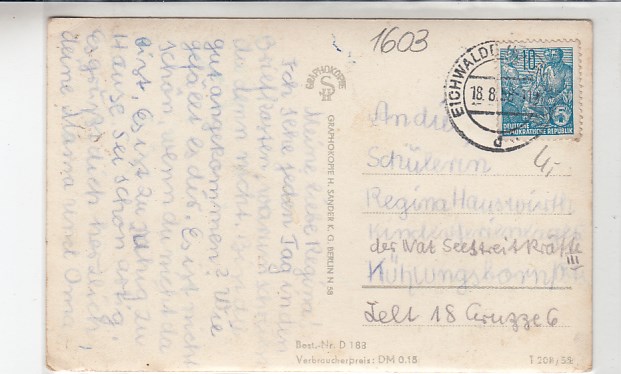 1603
Meine liebe Regina!
Ich sehe jeden Tag in den
Briefkasten, warum schreibst
du denn nicht.
gut angekommen? Wie
gefällt es dir. Es ist nicht
schön, wenn du nicht da
bist, es ist zu ruhig zu
Hause. Sei schön artig.
Es grüßt dich herzlich
deine Mama und Oma!
GRAPHOKOPIE
GRAPHOKOPIE H. SANDER K. G. BERLIN N 58
EICHWALDE
18.8.
d
10
5
DEUTSCHE
DEMOKRATISCHE REPUBLIK
4,-
An die
Schülerin
Regina Hauswirth
Kinderferienlager
der Nat Seestreitkräfte
Kühlungsborn III
Zelt 18 Gruppe 6
Best.-Nr. D 183
Verbraucherpreis: DM 0.15